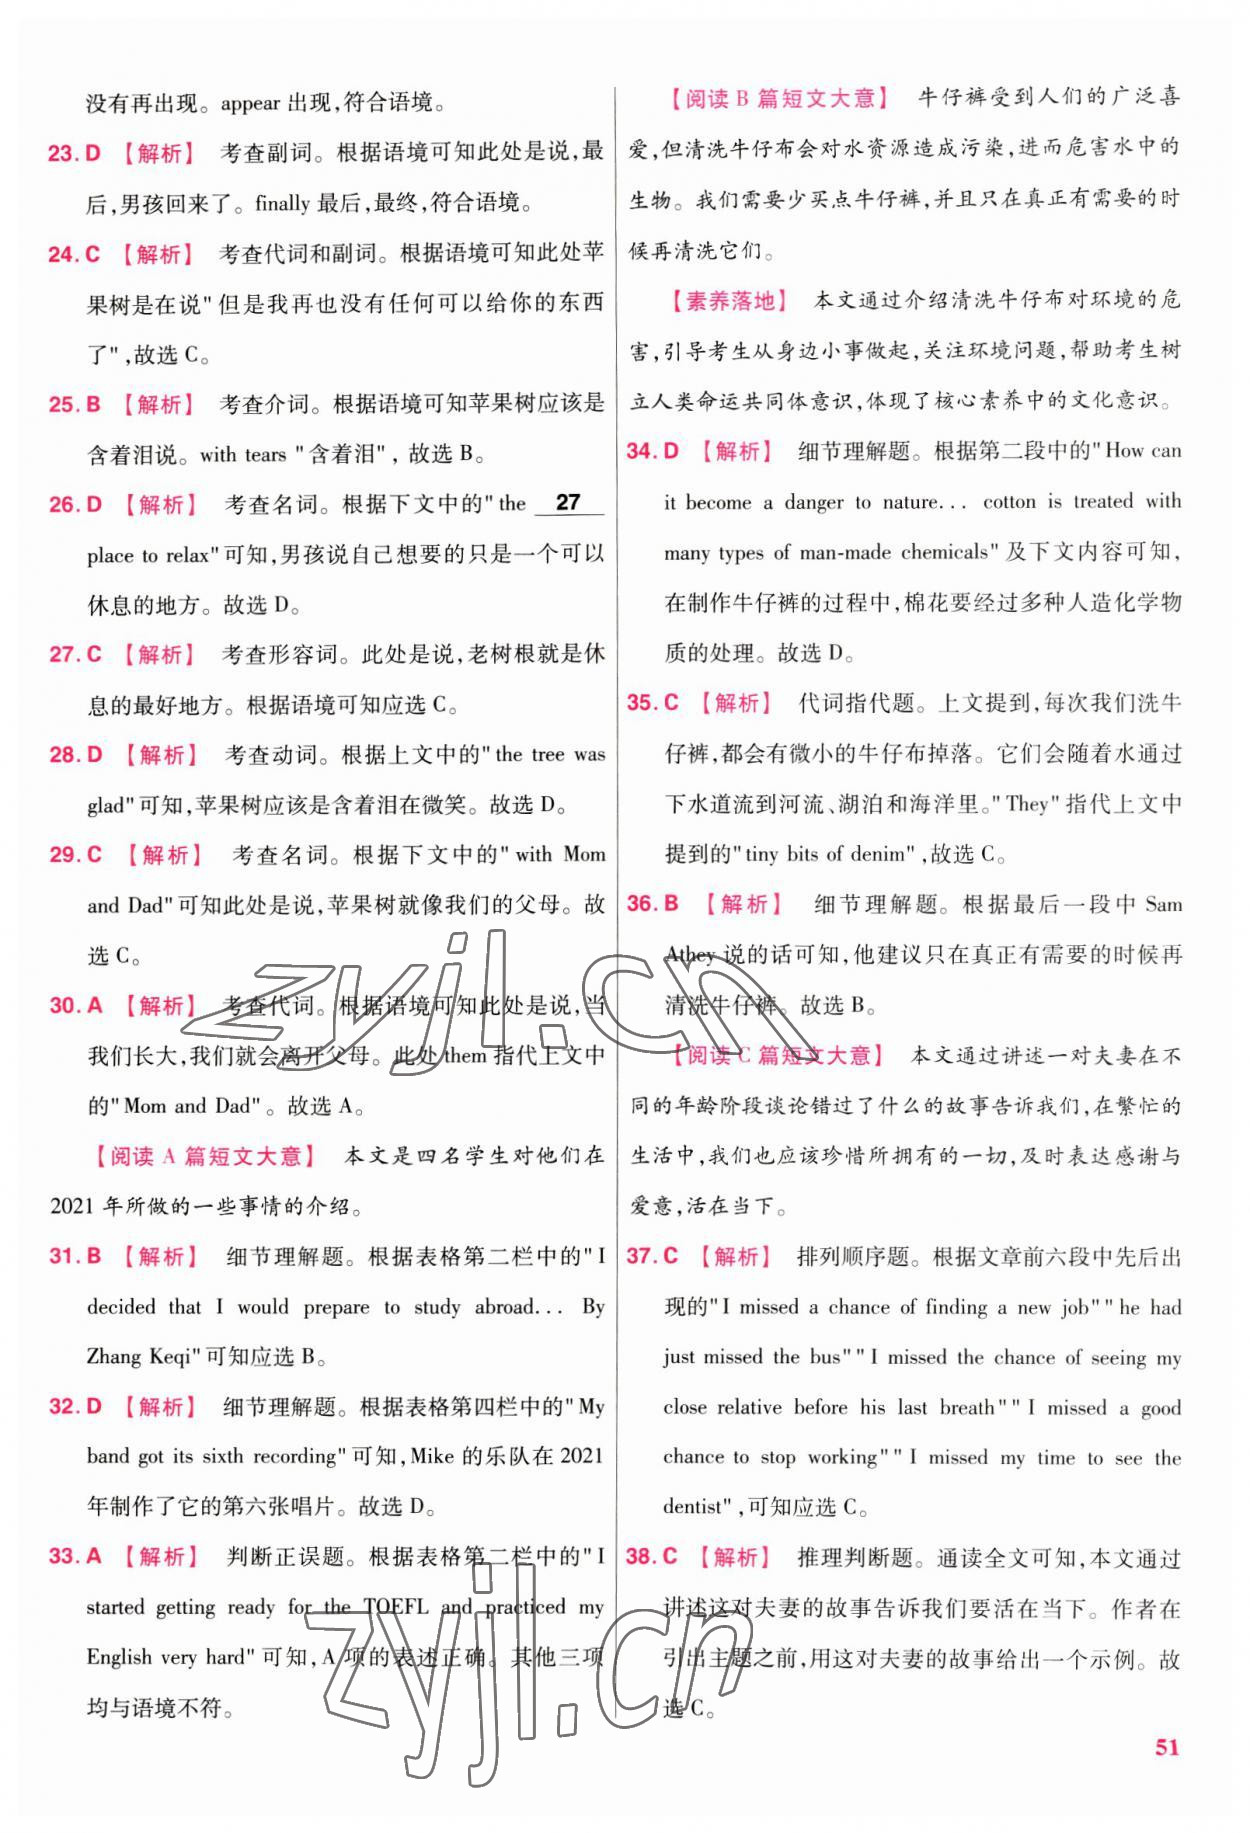 没有再出现。appear 出现,符合语境。
23. D 【解析】 考查副词。根据语境可知此处是说,最
后,男孩回来了。finally 最后,最终,符合语境。
24. C 【解析】 考查代词和副词。根据语境可知此处苹
果树是在说"但是我再也没有任何可以给你的东西
了",故选 C。
25. B 【解析】 考查介词。根据语境可知苹果树应该是
含着泪说。with tears "含着泪", 故选 B。
26. D 【解析】 考查名词。根据下文中的"the 27
place to relax"可知,男孩说自己想要的只是一个可以
休息的地方。故选 D。
27. C 【解析】 考查形容词。此处是说,老树根就是休
息的最好地方。根据语境可知应选 C。
28. D 【解析】 考查动词。根据上文中的"the tree was
glad"可知,苹果树应该是含着泪在微笑。故选 D。
29. C 【解析】 考查名词。根据下文中的"with Mom
and Dad"可知此处是说,苹果树就像我们的父母。故
选 C。
30. A 【解析】 考查代词。根据语境可知此处是说,当
我们长大,我们就会离开父母。此处 them 指代上文中
的"Mom and Dad"。故选 A。
【阅读 A 篇短文大意】 本文是四名学生对他们在
2021 年所做的一些事情的介绍。
31. B 【解析】 细节理解题。根据表格第二栏中的"I
decided that I would prepare to study abroad... By
Zhang Keqi"可知应选 B。
32. D 【解析】 细节理解题。根据表格第四栏中的"My
band got its sixth recording"可知,Mike 的乐队在 2021
年制作了它的第六张唱片。故选 D。
33. A 【解析】 判断正误题。根据表格第二栏中的"I
started getting ready for the TOEFL and practiced my
English very hard"可知,A 项的表述正确。其他三项
均与语境不符。
【阅读 B 篇短文大意】 牛仔裤受到人们的广泛喜
爱,但清洗牛仔布会对水资源造成污染,进而危害水中的
生物。我们需要少买点牛仔裤,并且只在真正有需要的时
候再清洗它们。
【素养落地】 本文通过介绍清洗牛仔布对环境的危
害,引导考生从身边小事做起,关注环境问题,帮助考生树
立人类命运共同体意识,体现了核心素养中的文化意识。
34. D 【解析】 细节理解题。根据第二段中的"How can
it become a danger to nature... cotton is treated with
many types of man-made chemicals"及下文内容可知,
在制作牛仔裤的过程中,棉花要经过多种人造化学物
质的处理。故选 D。
35. C 【解析】 代词指代题。上文提到,每次我们洗牛
仔裤,都会有微小的牛仔布掉落。它们会随着水通过
下水道流到河流、湖泊和海洋里。"They"指代上文中
提到的"tiny bits of denim",故选 C。
36. B 【解析】 细节理解题。根据最后一段中 Sam
Athey 说的话可知,他建议只在真正有需要的时候再
清洗牛仔裤。故选 B。
【阅读 C 篇短文大意】 本文通过讲述一对夫妻在不
同的年龄阶段谈论错过了什么的故事告诉我们,在繁忙的
生活中,我们也应该珍惜所拥有的一切,及时表达感谢与
爱意,活在当下。
37. C 【解析】 排列顺序题。根据文章前六段中先后出
现的"I missed a chance of finding a new job""he had
just missed the bus""I missed the chance of seeing my
close relative before his last breath""I missed a good
chance to stop working""I missed my time to see the
dentist",可知应选 C。
38. C 【解析】 推理判断题。通读全文可知,本文通过
讲述这对夫妻的故事告诉我们要活在当下。作者在
引出主题之前,用这对夫妻的故事给出一个示例。故
选 C。
51
zyjl.cn
zyjl.cn